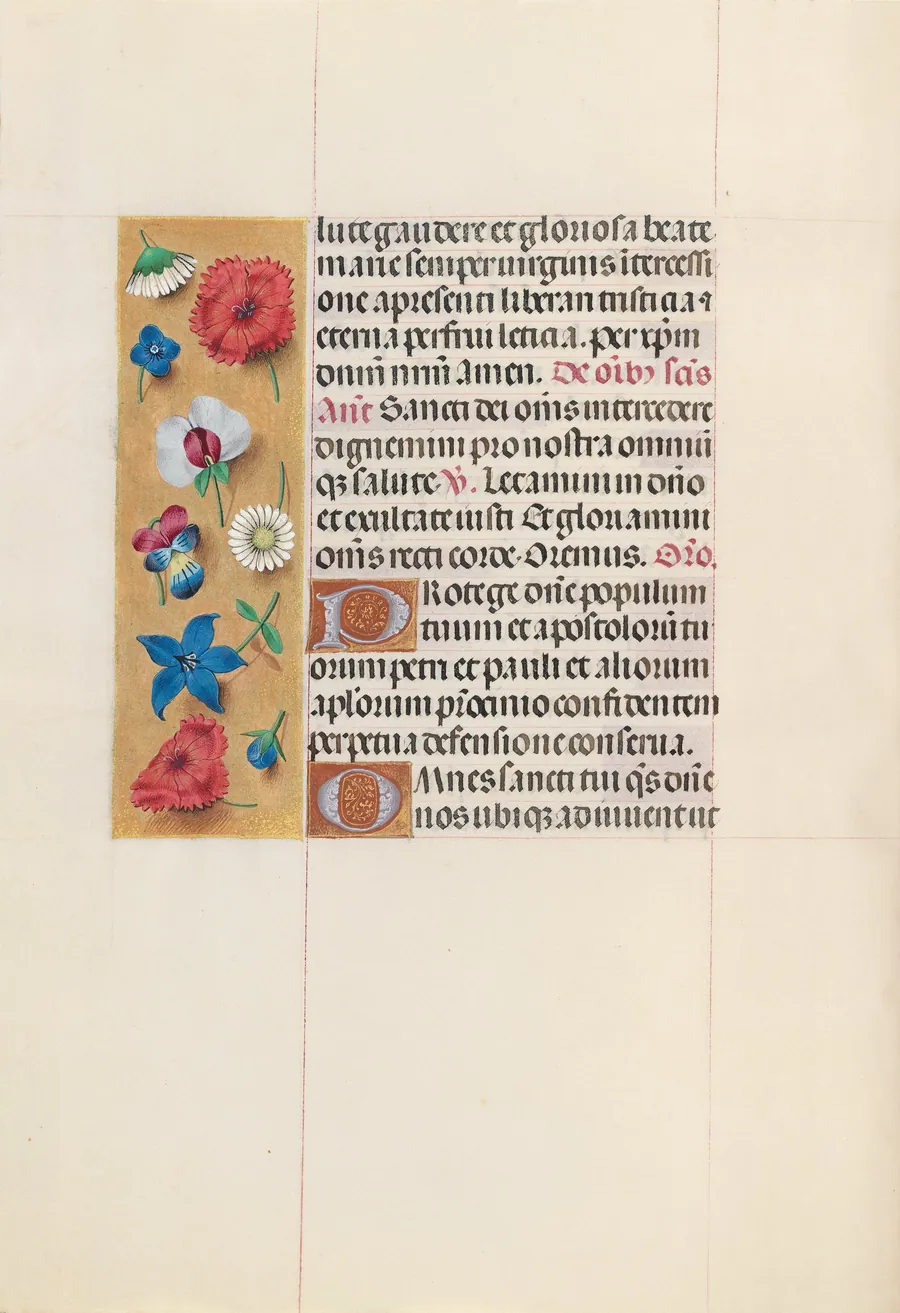 lute gaudere et gloriosa beate
marie semper uirginis ītercessi
one a presenti liberari tristicia ⁊
eterna perfrui leticia. per xp̄m
dn̄m nr̄m Amen. De oīb⁹ scīs
Ant̄ Sancti dei om̄s intercedere
dignemini pro nostra omniū
qꝫ salute. V̄. Letamini in dn̄o
et exultate iusti Et gloriamini
om̄s recti corde. Oremus. Or̄o.
PRotege dn̄e populum
tuum et apostolorū tu
orum petri et pauli et aliorum
apl'orum pr̄ocinio confidentem
perpetua defensione conserua.
OMnes sancti tui q̄s dn̄e
nos ubiqꝫ adiuuent ut